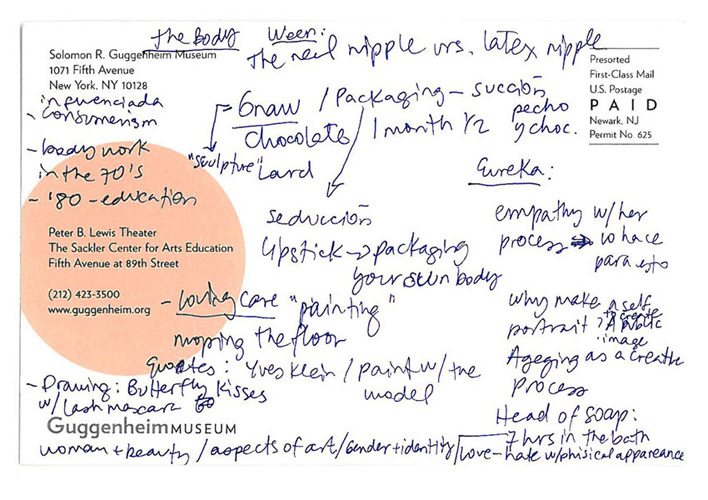 The Body
Ween:
The real nipple vrs. latex nipple
Solomon R. Guggenheim Museum
1071 Fifth Avenue
New York, NY 10128
Presorted
First-Class Mail
U.S. Postage
PAID
Newark, NJ
Permit No. 625
influenciada
- Consumerism
- body work
in the 70's
- '80 - education
Gnaw / Packaging - succión
pecho
y choc.
Chocolate / 1 month 1/2
"sculpture" Lard
Peter B. Lewis Theater
The Sackler Center for Arts Education
Fifth Avenue at 89th Street
(212) 423-3500
www.guggenheim.org
seducción
Lipstick → packaging
your skin body
- Loving care "painting"
moping the floor
quotes: Yves Klein / paint w/ the
model
- Drawing: Butterfly Kisses
w/ Lash mascara
Eureka:
empathy w/ her
process → lo hace
para esto
why make a self
portrait, to create
A public
image
Ageging as a creative
process
Head of soap:
7 hrs in the bath
Guggenheim MUSEUM
woman + beauty / aspects of art / Gender + identity / Love - hate w/ phisical appareance